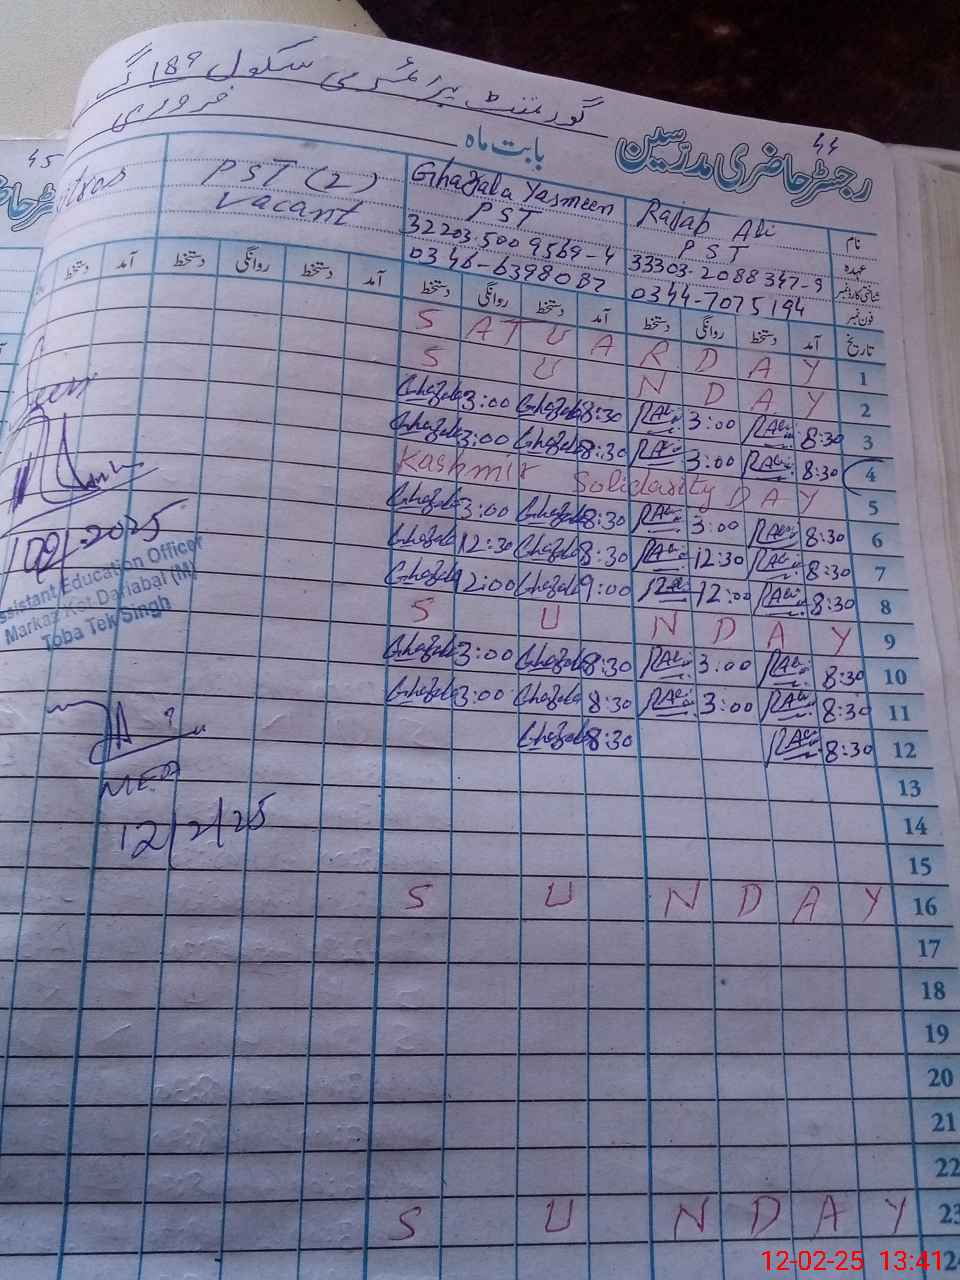 گورنمنٹ پرائمری سکول 189 گ
44
رجسٹر حاضری مدرسین
بابت ماہ فروری
45
نام Rajab Ali Ghazala Yasmeen PST (2)
عہدہ PST PST Vacant
شناختی کارڈ نمبر 33303-2088347-9 32203-5009569-4
فون نمبر 0344-7075194 0346-6398087
تاریخ آمد دستخط روانگی دستخط آمد دستخط روانگی دستخط آمد دستخط روانگی دستخط آمد دستخط
1 SATURDAY
2 SUNDAY
3 8:30 RAli 3:00 RAli 8:30 Ghazala 3:00 Ghazala
4 8:30 RAli 3:00 RAli 8:30 Ghazala 3:00 Ghazala
5 Kashmir Solidarity DAY
6 8:30 RAli 3:00 RAli 8:30 Ghazala 3:00 Ghazala
7 8:30 RAli 12:30 RAli 8:30 Ghazala 12:30 Ghazala
8 8:30 RAli 12:00 RAli 9:00 Ghazala 12:00 Ghazala
9 SUNDAY
10 8:30 RAli 3:00 RAli 8:30 Ghazala 3:00 Ghazala
11 8:30 RAli 3:00 RAli 8:30 Ghazala 3:00 Ghazala
12 8:30 RAli 8:30 Ghazala
13
14
15
16 SUNDAY
17
18
19
20
21
22
23 SUNDAY
24
Assistant Education Officer
Markaz Kot Dariabal (M)
Toba Tek Singh
MEA
12/2/25
12-02-25 13:41